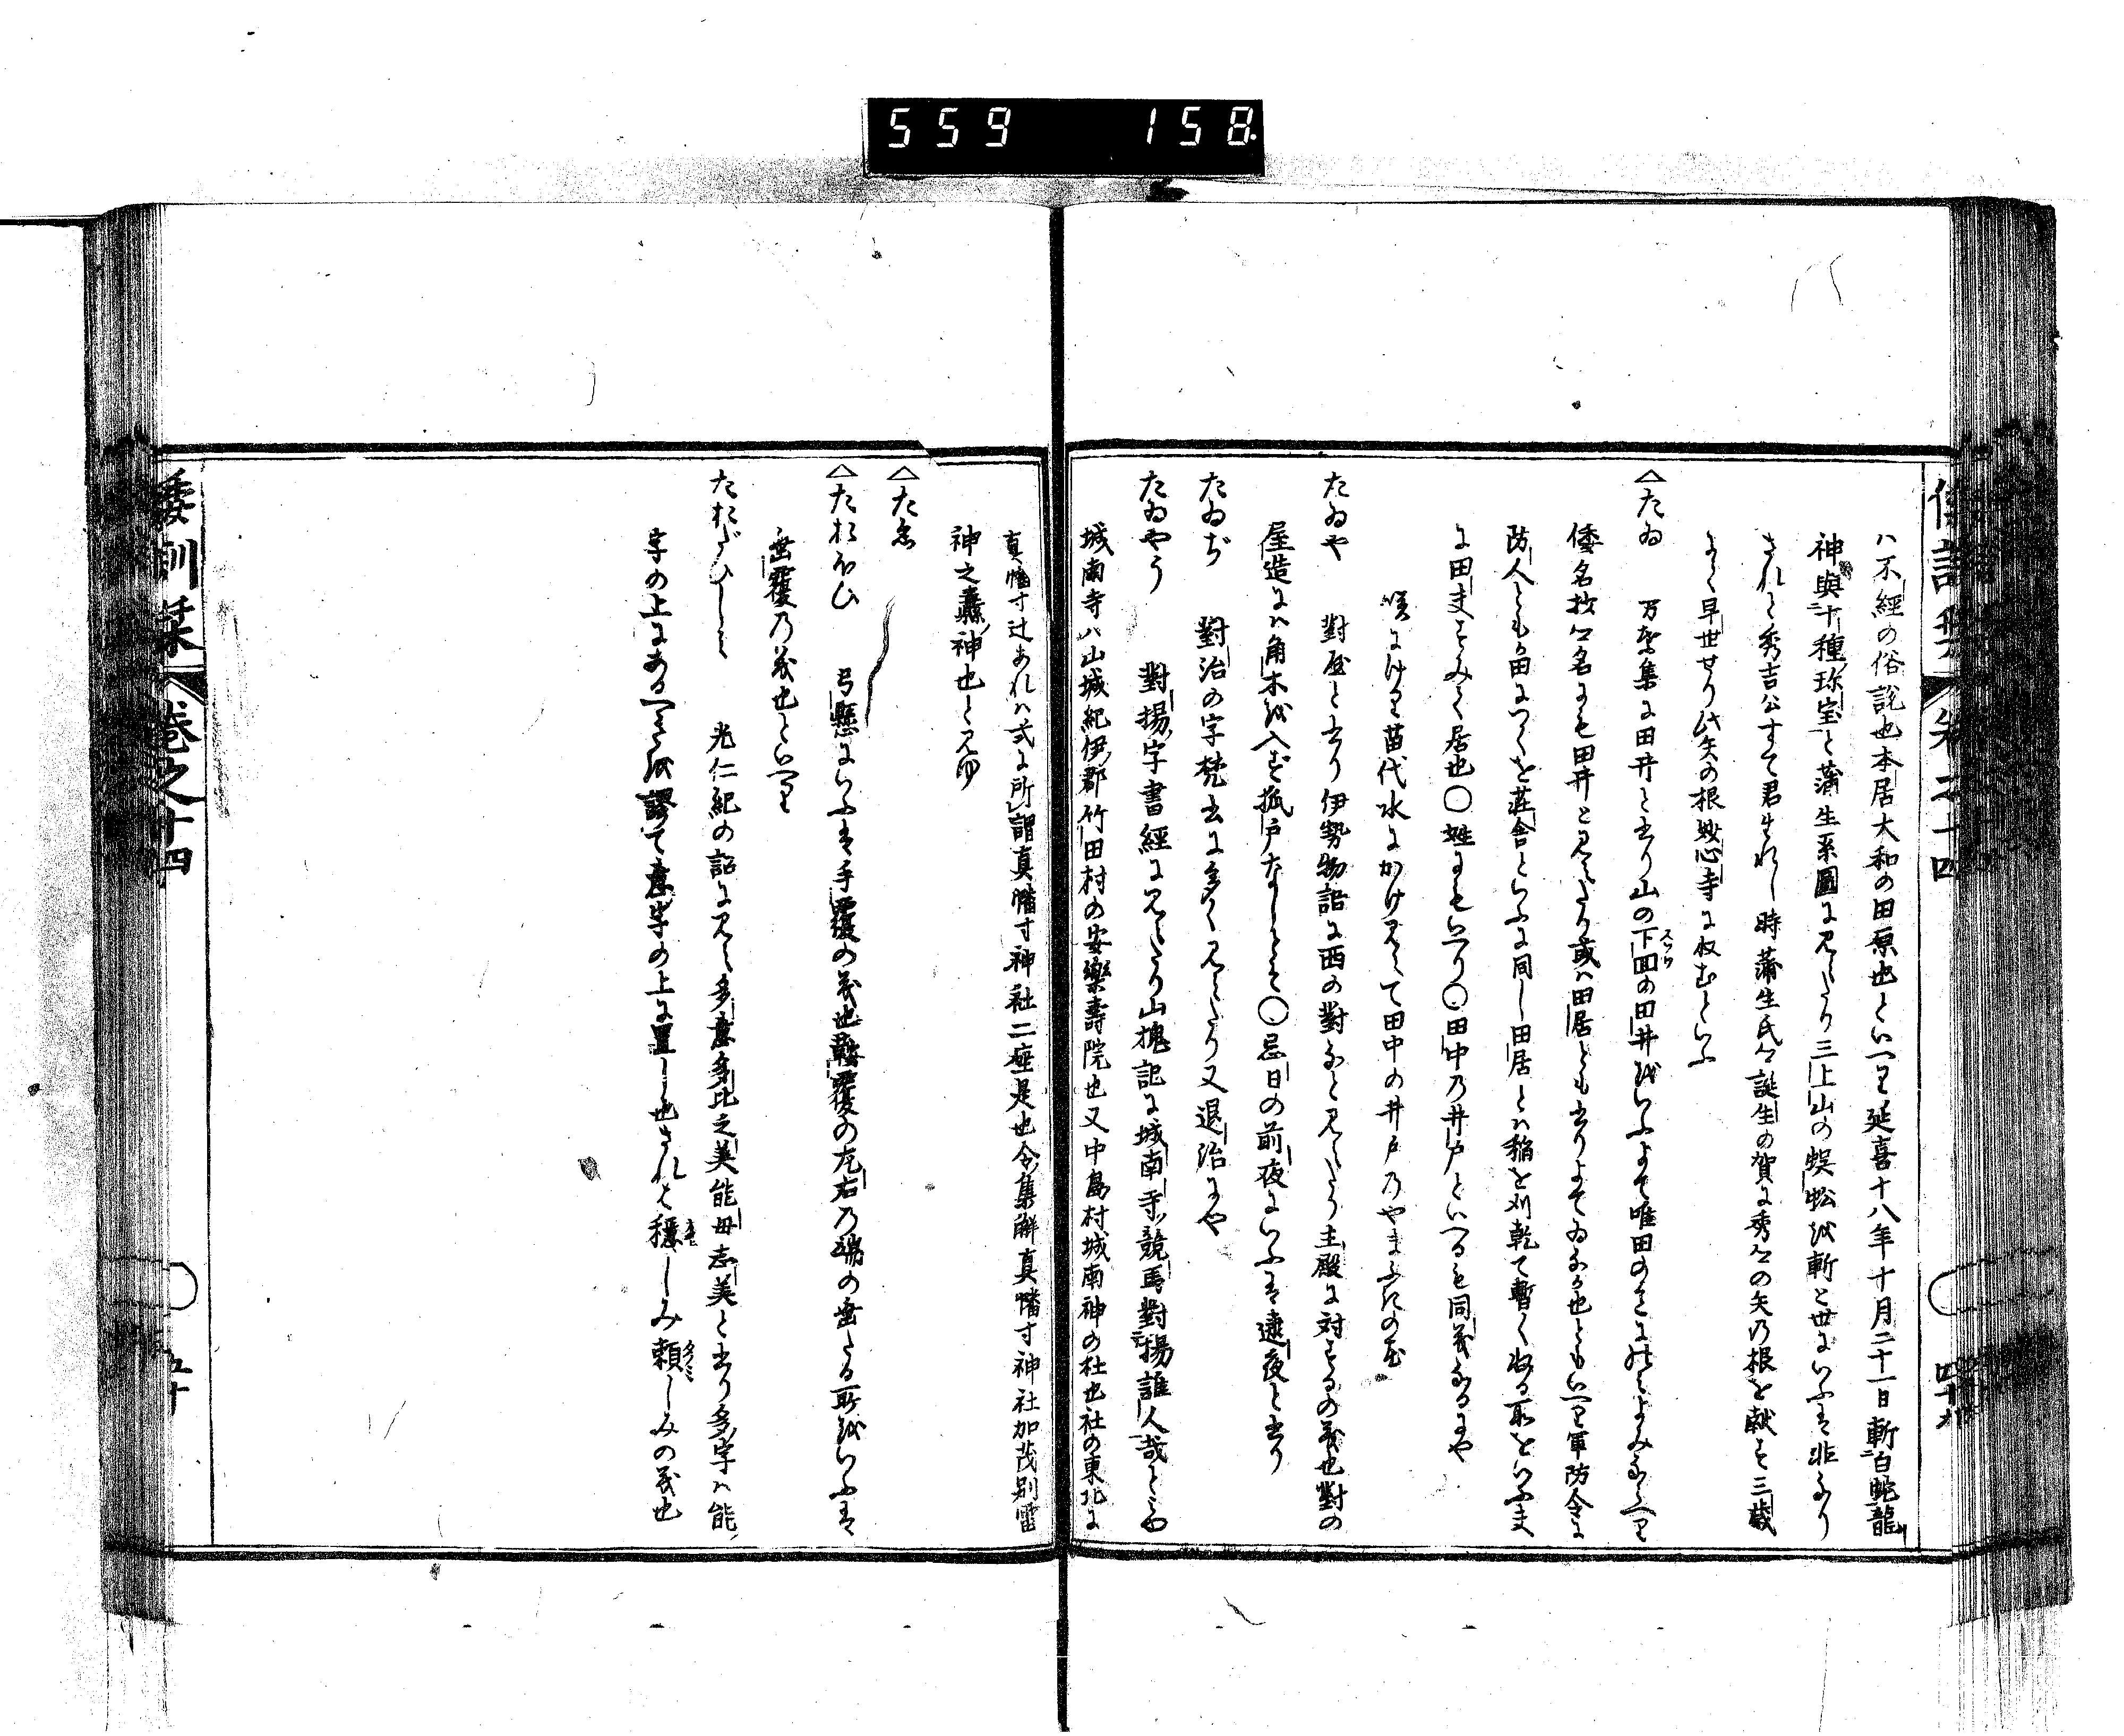 559 158
ハ不經の俗説也本居大和の田原也といへり延喜十八年十月二十一日斬白蛇龍
神與十種珎宝と蒲生系圖に見えたり三上山の蜈蚣を斬と世にいふは非なり
されと秀吉公すて君生れし時蒲生氏より誕生の賀に秀の矢乃根を献す三歳
にて早世せり此矢の根妙心寺に收むといふ
△たゐ 万葉集に田井と書り山の下田の田井をいふよて唯田のことに此とよみたへり
倭名抄名にも田井と見えたり或ハ田居とも書りよてゐなか也ともいへり軍防令に
防人とも田につくを荘舎といふに同し田居とハ稲を刈乾て暫く收る所をいふ
に田をみて居也〇姓にもいへり〇田中乃井戸といへるも同義なるにや
咲にけり苗代水にかけ見えて田中の井戸乃やまふきの花
たゐや 對屋と書り伊勢物語に西の對なと見えたり主殿に対するの義也對の
屋造にハ角木を入す狐戸なしとそ〇忌日の前夜にいふは逮夜と書り
たゐぢ 對治の字梵書に多く見えたり又退治にや
たゐやう 對揚字書經に見えたり山槐記に城南寺競馬對揚誰人哉とみゆ
城南寺ハ山城紀伊郡竹田村の安樂壽院也又中島村城南神の社也社の東北に
真幡寸辻あれハ式に所謂真幡寸神社二座是也令集解真幡寸神社加茂別雷
神之纛神也と見ゆ
△たゑ
△たおほひ 弓懸にいふは手覆の義也鞍覆の左右乃端の垂たる所をいふは
垂覆乃義也といへり
たおだひしミ 光仁紀の詔に見ゆ多意多比之美能毋志美と書り多字ハ能
字の上にあるへきを謬て意字の上に置し也されは穏しみ頼しみの義也
倭訓栞 巻之十四 五十
四十九